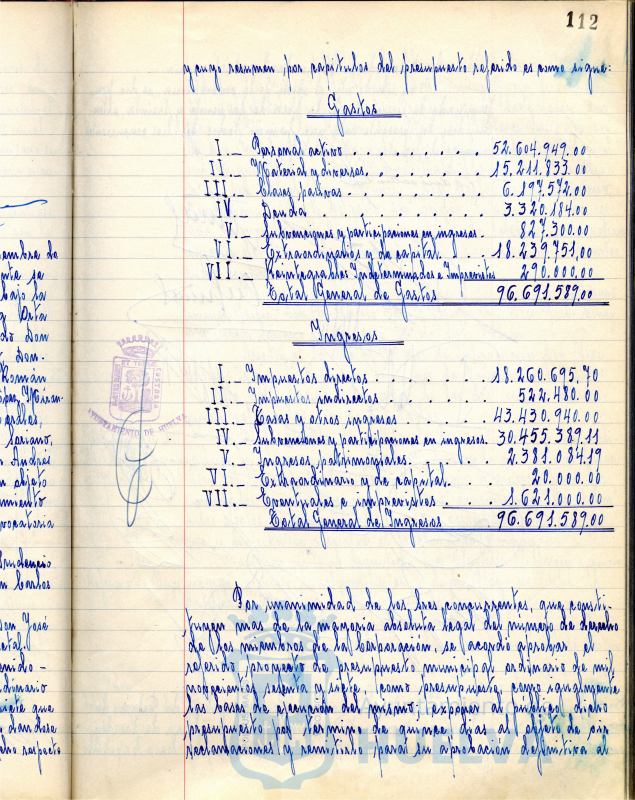 112
y cuyo resumen, por capítulos del presupuesto referido es como sigue:
Gastos
I._ Personal activo . . . . . . . . . 52.604.949.00
II._ Material y diversos. . . . . . . . 15.211.833.00
III._ Clases pasivas . . . . . . . . . 6.197.572.00
IV._ Deuda . . . . . . . . . . . 3.320.184.00
V._ Subvenciones y participaciones en ingresos. 827.300.00
VI._ Extraordinarios y de capital. . . 18.239.751,00
VII._ Reintegrables Indeterminados e Imprevistos 290.000.00
Total General de Gastos 96.691.589.00
Ingresos
I._ Impuestos directos . . . . . . . 18.260.695,70
II._ Impuestos indirectos . . . . . . 522.480.00
III._ Tasas y otros ingresos . . . . . 43.430.940.00
IV._ Subvenciones y participaciones en ingresos. 30.455.389,11
V._ Ingresos patrimoniales. . . . . . 2.381.084,19
VI._ Extraordinario y de capital. . . . 20.000.00
VII._ Eventuales e imprevistos . . . . 1.621.000.00
Total General de Ingresos 96.691.589.00
Por unanimidad de los tres concurrentes, que consti-
tuyen mas de la mayoria absoluta legal del número de derecho
de los miembros de la Corporación, se acordó aprobar el
referido proyecto de presupuesto municipal ordinario de mil
novecientos sesenta y siete, como presupuesto, como igualmente
las bases de ejecución del mismo, exponer al público dicho
presupuesto por termino de quince dias al objeto de oir
reclamaciones y remitirlo para su aprobación definitiva al
AYUNTAMIENTO DE HUELVA
HUELVA